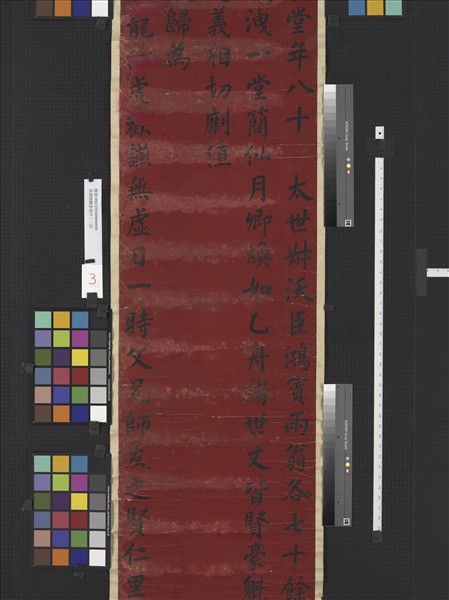 堂年八十　太世尌溪臣鴻賓兩翁各七十餘
洩一堂簡仙月卿煥如乙舟諸世丈皆賢豪魁
義相切劘值
歸為
龍 虎 讌無虛日一時父兄師友之賢仁里
3